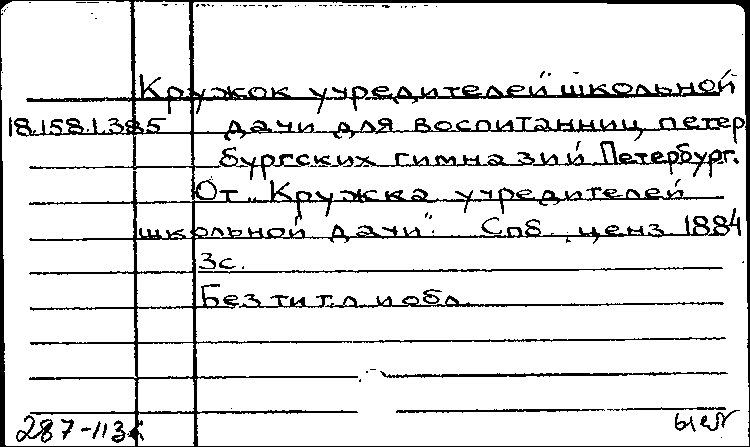 Кружок учредителей школьной
18.158.1.385 дачи для воспитанниц петер
бургских гимназий. Петербург.
От „Кружка учредителей
школьной дачи". Спб, ценз. 1884
3с.
Без тит. л. и обл.
287-113к